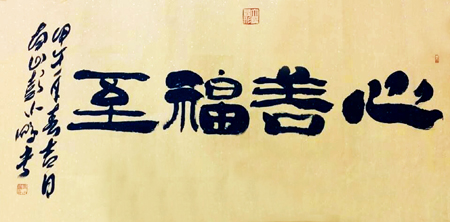 心善福至
甲午春吉日
南山小书